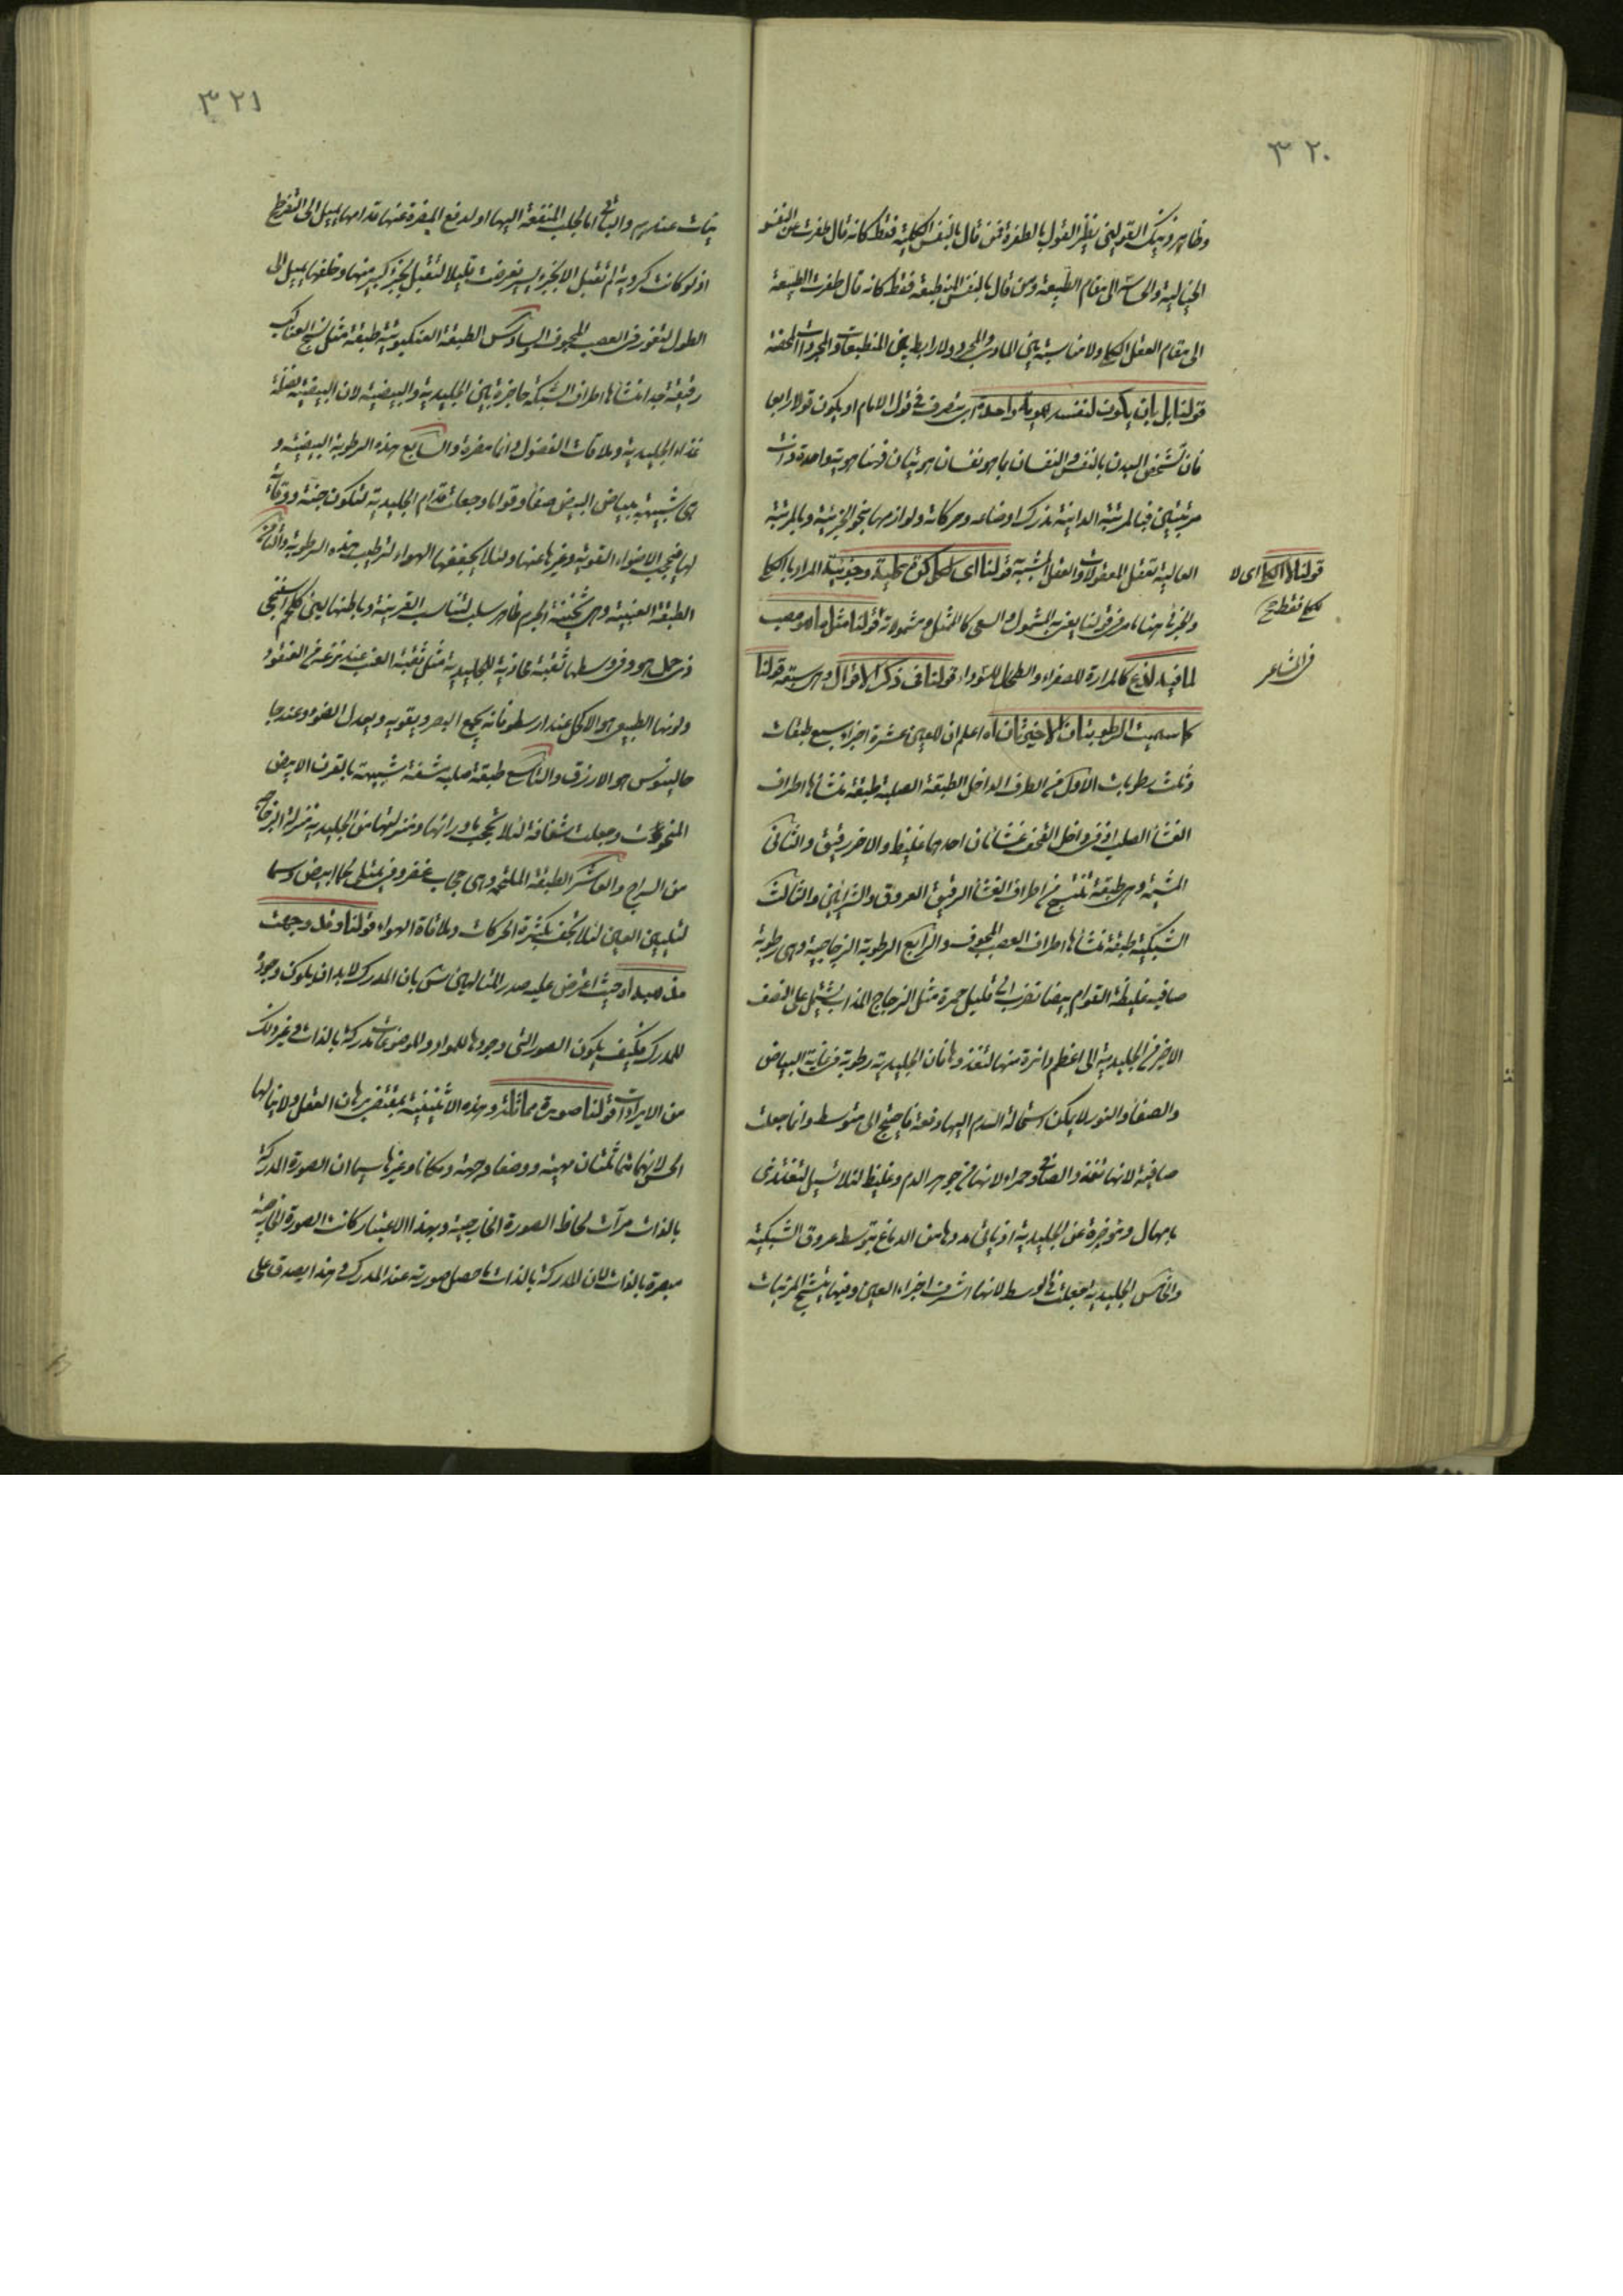 ٣٢٠
وظاهر ذينك القولين نظير القول بالطفرة فمن قال بالنفس الكلية فقط كانه قال طفرت من النفس
الخيالية والحساسة الى مقام الطبيعة ومن قال بالنفس المنطبعة فقط كانه قال طفرت الطبيعة
الى مقام العقل الكلي ولا مناسبة بين المادي والمجرد ولا رابط بين المنطبعات والمجردات المحضة
قولنا بل بان يكون لنفسه هوية واحدة اى يتصرف فى قول الامام او يكون قولا رابعا
فان تشخص البدن بالنفس والنفسان بما هو نفسان هويتان وهنا هوية واحدة ذات
مرتبتين فبالمرتبة الدانية تدرك اوضاعه وحركاته ولوازمها بنحو الجزئية وبالمرتبة
العالية تعقل المعقولات والعقل المشبه قولنا اى لكل قوة كلية وجزئية المراد بالكلي
والجزئى هنا ما مر فى قولنا يعزى الشمول والسعى كالمثل ومشمولاته قولنا مثل ما هو مصب
لما فيه لذع كالمرارة للصفراء والطحال للسوداء قولنا فى ذكر الاقوال وهى سبعة قولنا
كما سميت الرطوبتان الاخريتان اه اعلم ان للعين عشرة اجزاء سبع طبقات
وثلث رطوبات الاول من الطرف الداخل الطبقة الصلبة طبقة منشأها اطراف
الغشاء الصلب اذ فى داخل القحف غشاءان احدهما غليظ والاخر رقيق والثانى
المشيمة وهى طبقة تنتسج من اطراف الغشاء الرقيق العروق والشرائين والثالث
الشبكية طبقة منشأها اطراف العصب المجوف والرابع الرطوبة الزجاجية وهى رطوبة
صافية غليظة القوام بيضاء تضرب الى قليل حمرة مثل الزجاج الذائب يشتمل على النصف
الاخير من الجليدية الى اعظم دائرة منها لتغذوها فان الجليدية رطوبة فى غاية البياض
والصفاء والنور لا يمكن استحالة الدم اليها دفعة فاحتيج الى متوسط وانما جعلت
صافية لانها تغذو الصافى وحمراء لانها من جوهر الدم وغليظ لئلا تسيل لتغتذى
بامهال وموخرة عن الجليدية اذ ياتى مددها من الدماغ بتوسط عروق الشبكية
والخامس الجليدية جعلت فى الوسط لانها اشرف اجزاء العين وفيها يتشبح المرئيات
قولنا لا الكلي اى لا
الكلي فقط ح
فى المشاعر
٣٢١
عندهم والبواقى اما لجلب المنفعة اليها او لدفع المضرة عنها قدامها يميل الى التفرطح
اذ لو كانت كروية لم تقبل الا بجزء يسير فعرضت قليلا لتقبل بجزء كبير منها وخلفها يميل الى
الطول لتغوز فى العصب المجوف السادس الطبقة العنكبوتية طبقة مثل نسج العناكب
رقيقة جدا منشأها اطراف الشبكة حاجزة بين الجليدية والبيضية لان البيضية فضلة
غذاء الجليدية وملاقات الفضول دائما مضرة والسابع هذه الرطوبة البيضية و
هى شبيهة ببياض البيض صفاء وقواما وجعلت قدام الجليدية لتكون جنة ووقاية
لها فتحجب الاضواء القوية وغيرها عنها ولئلا يجففها الهواء لترطيب هذه الرطوبة والثامن
الطبقة العنبية وهى ثخينة الجرم ظاهرها صلب لتناسب القرنية وباطنها لين كلحم اسفنجى
ذى خمل هو وفى وسطها ثقبة محاذية للجليدية مثل ثقبة العنب عند نزعه من العنقود
ولونها الطبيعى هو الاكحل عند ارسطو فانه يجمع البصر ويقويه ويعدل الضوء وعند جا
جالينوس هو الازرق والتاسع طبقة صلبة شفة شبيهة بالقرن الابيض
المنحوت وجعلت شفافة لئلا تحجب ما ورائها ومنزلتها من الجليدية منزلة الزجاج
من السراج والعاشر الطبقة الملتحمة وهى حجاب غضروفى ممتلى لحما ابيض دسما
لتليين العين لئلا تجف بكثرة الحركات وملاقاة الهواء قولنا وقد وجهت
مذهبه اه حيث اعترض عليه صدر المتالهين س بان المدرك لا بد ان يكون وجوده
للمدرك فكيف يكون الصور التى وجودها للمواد والموضوعات مدركة بالذات وغير ذلك
من الايرادات قولنا صورة مماثلة وهذه الاثنينية بمقتضى برهان العقل ولا ينالها
الحس لانهما متماثلتان مهية ووضعا وجهة ومكانا وغيرها سيما ان الصورة المدركة
بالذات مرآت لحاظ الصورة الخارجية وبهذا الاعتبار كانت الصورة الخارجية
مبصرة بالذات لان المدركة بالذات ما حصل صورته عند المدرك وهذا يصدق على